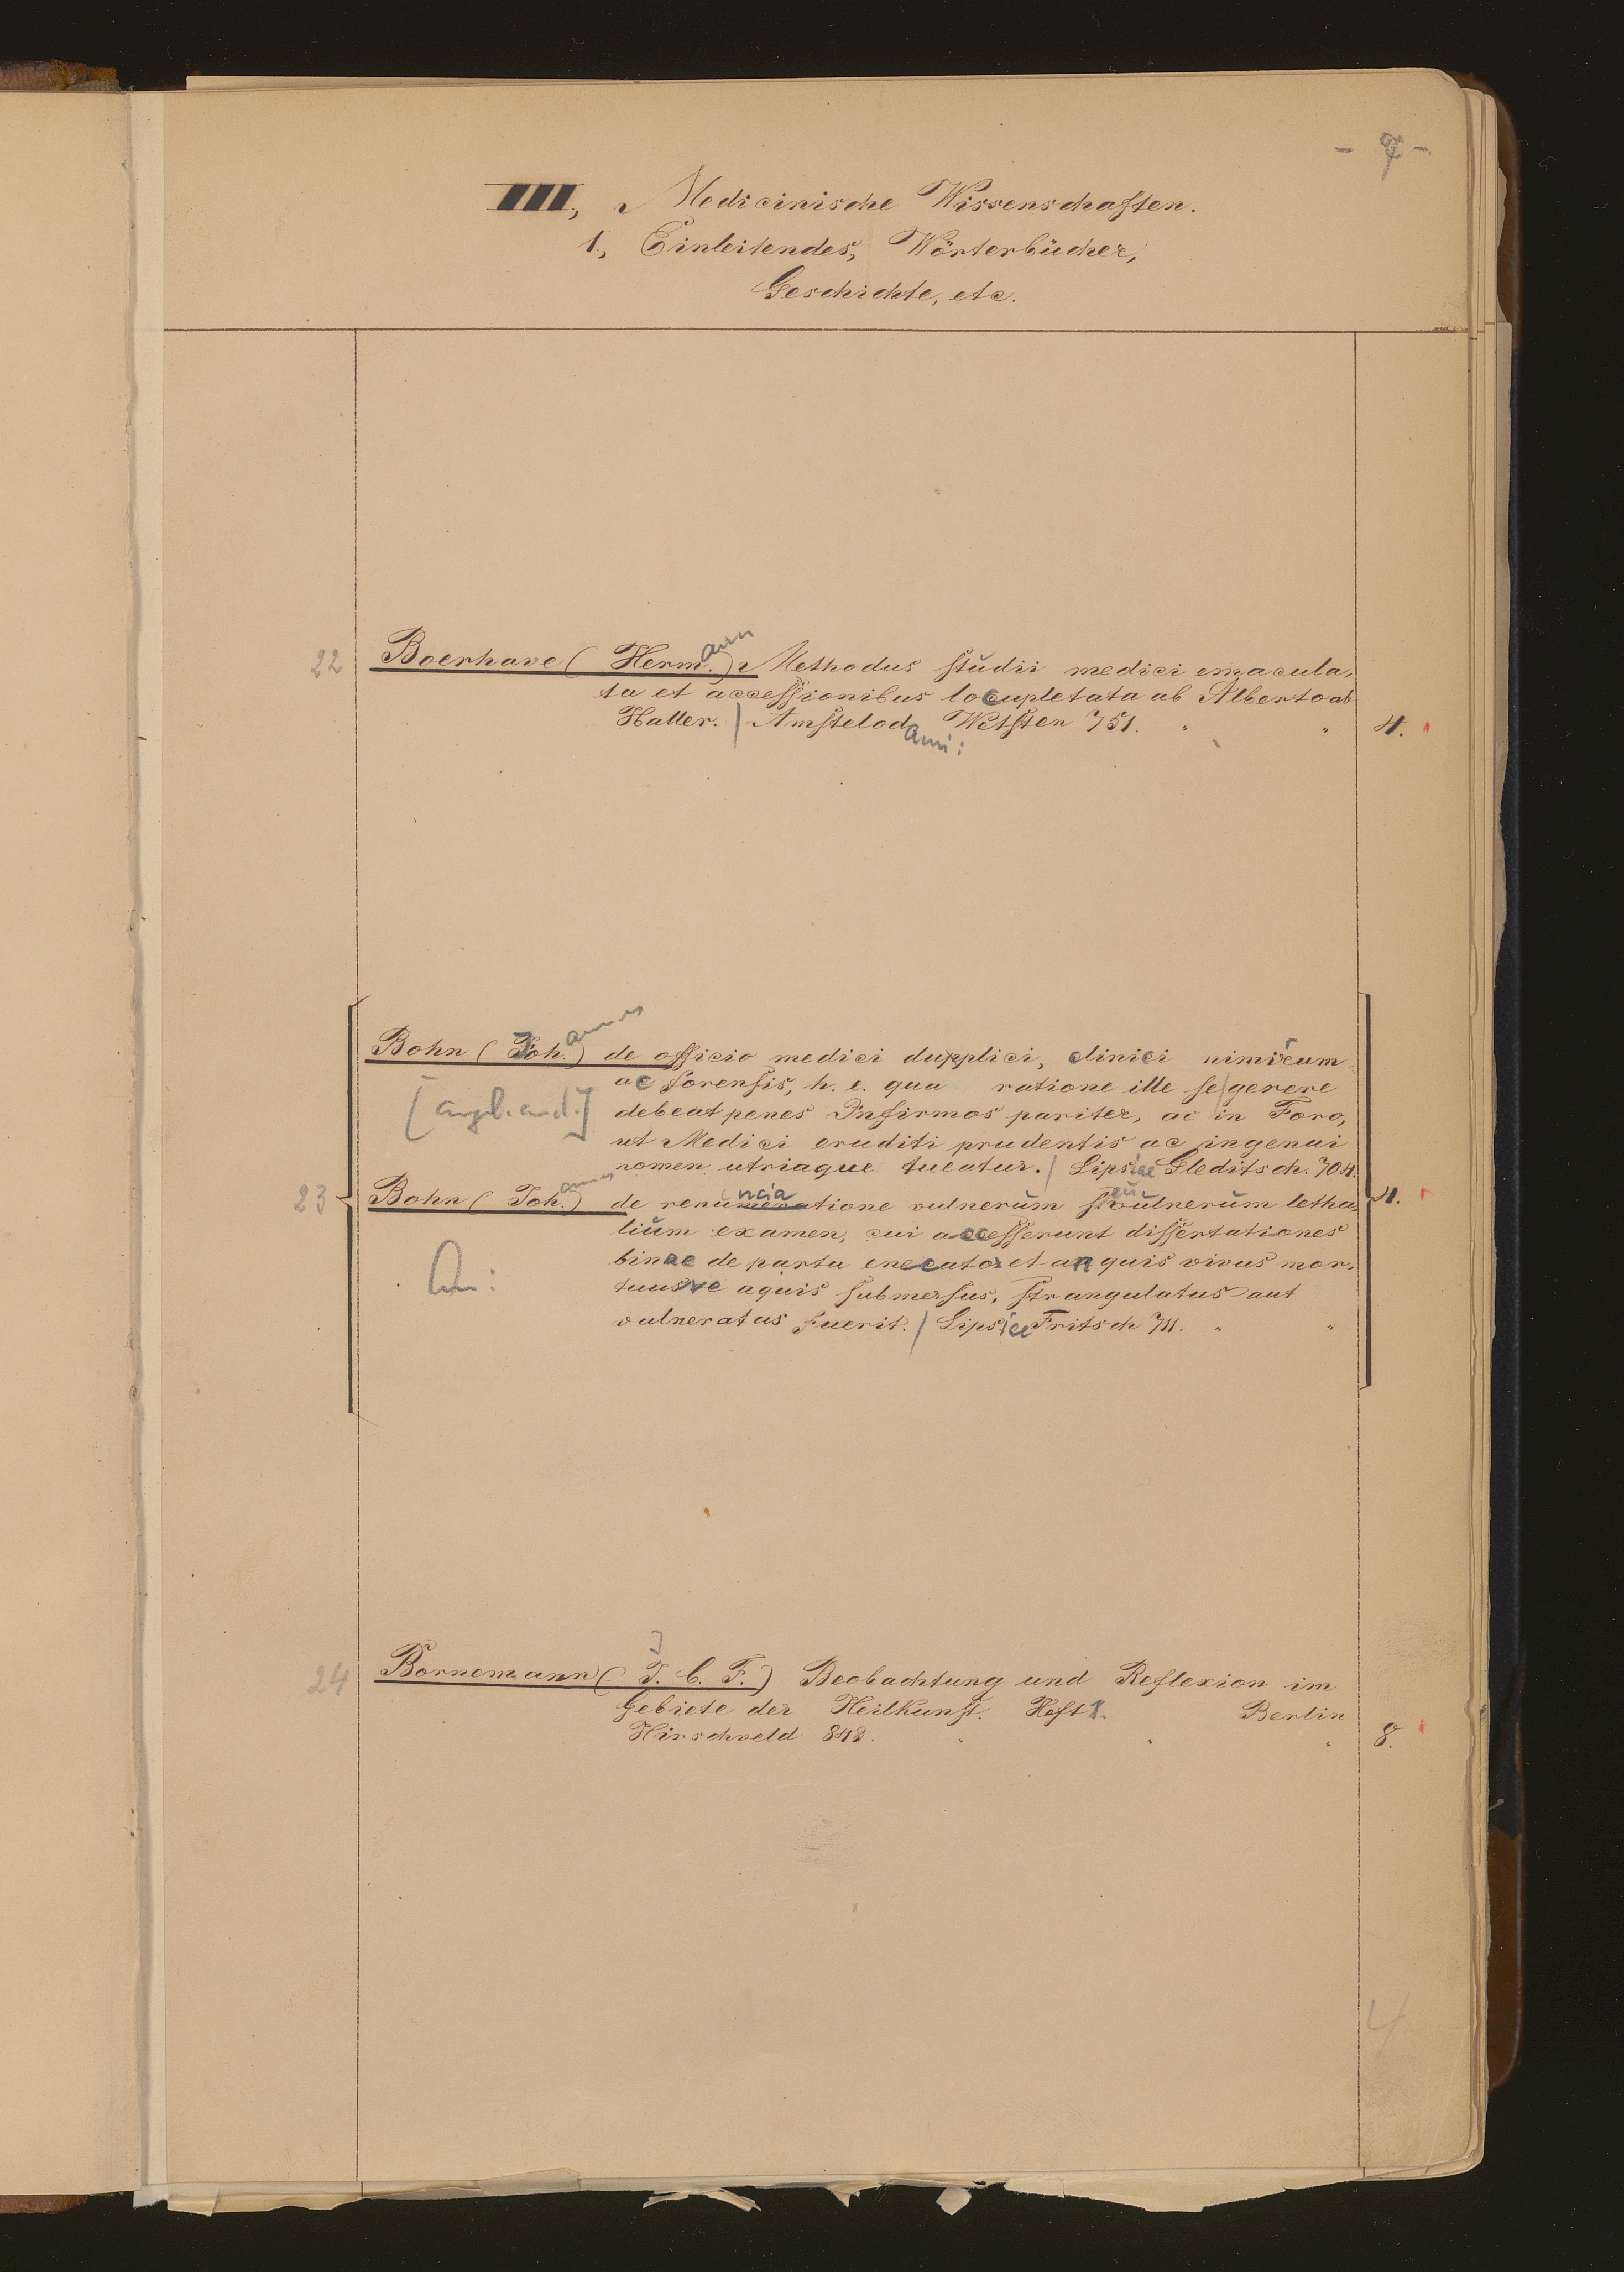 - 7 -
III, Medicinische Wissenschaften.
1., Einleitendes, Wörterbücher,
Geschichte, etc.
22 Boerhave (Hermann.) Methodus studii medici emacula-
ta et accessionibus locupletata ab Alberto ab
Haller. | Amstelodami: Wetsten 751. " " 4.
Bohn (Johannes) de officio medici dupplici, clinici nimirum
ac forensis, h. e. qua ratione ille se|gerere
[angeb. and.] debeat penes Infirmos pariter, ac in Foro,
ut Medici eruditi prudentis ac ingenui
nomen utriaque tueatur. | Lipsiae Gleditsch. 704.
23 Bohn (Johannes) de renunciatione vulnerum seu vulnerum letha- 4.
lium examen, cui accesserunt dissertationes
binae de partu enecato et an quis vivus mor-
An: tuusve aquis submersus, strangulatus aut
vulneratus fuerit. | Lipsiae Fritsch 711. " "
24 Bornemann (J. C. F.) Beobachtung und Reflexion im
Gebiete der Heilkunst. Heft 1. Berlin
Hirschveld 848. " " " 8.
4